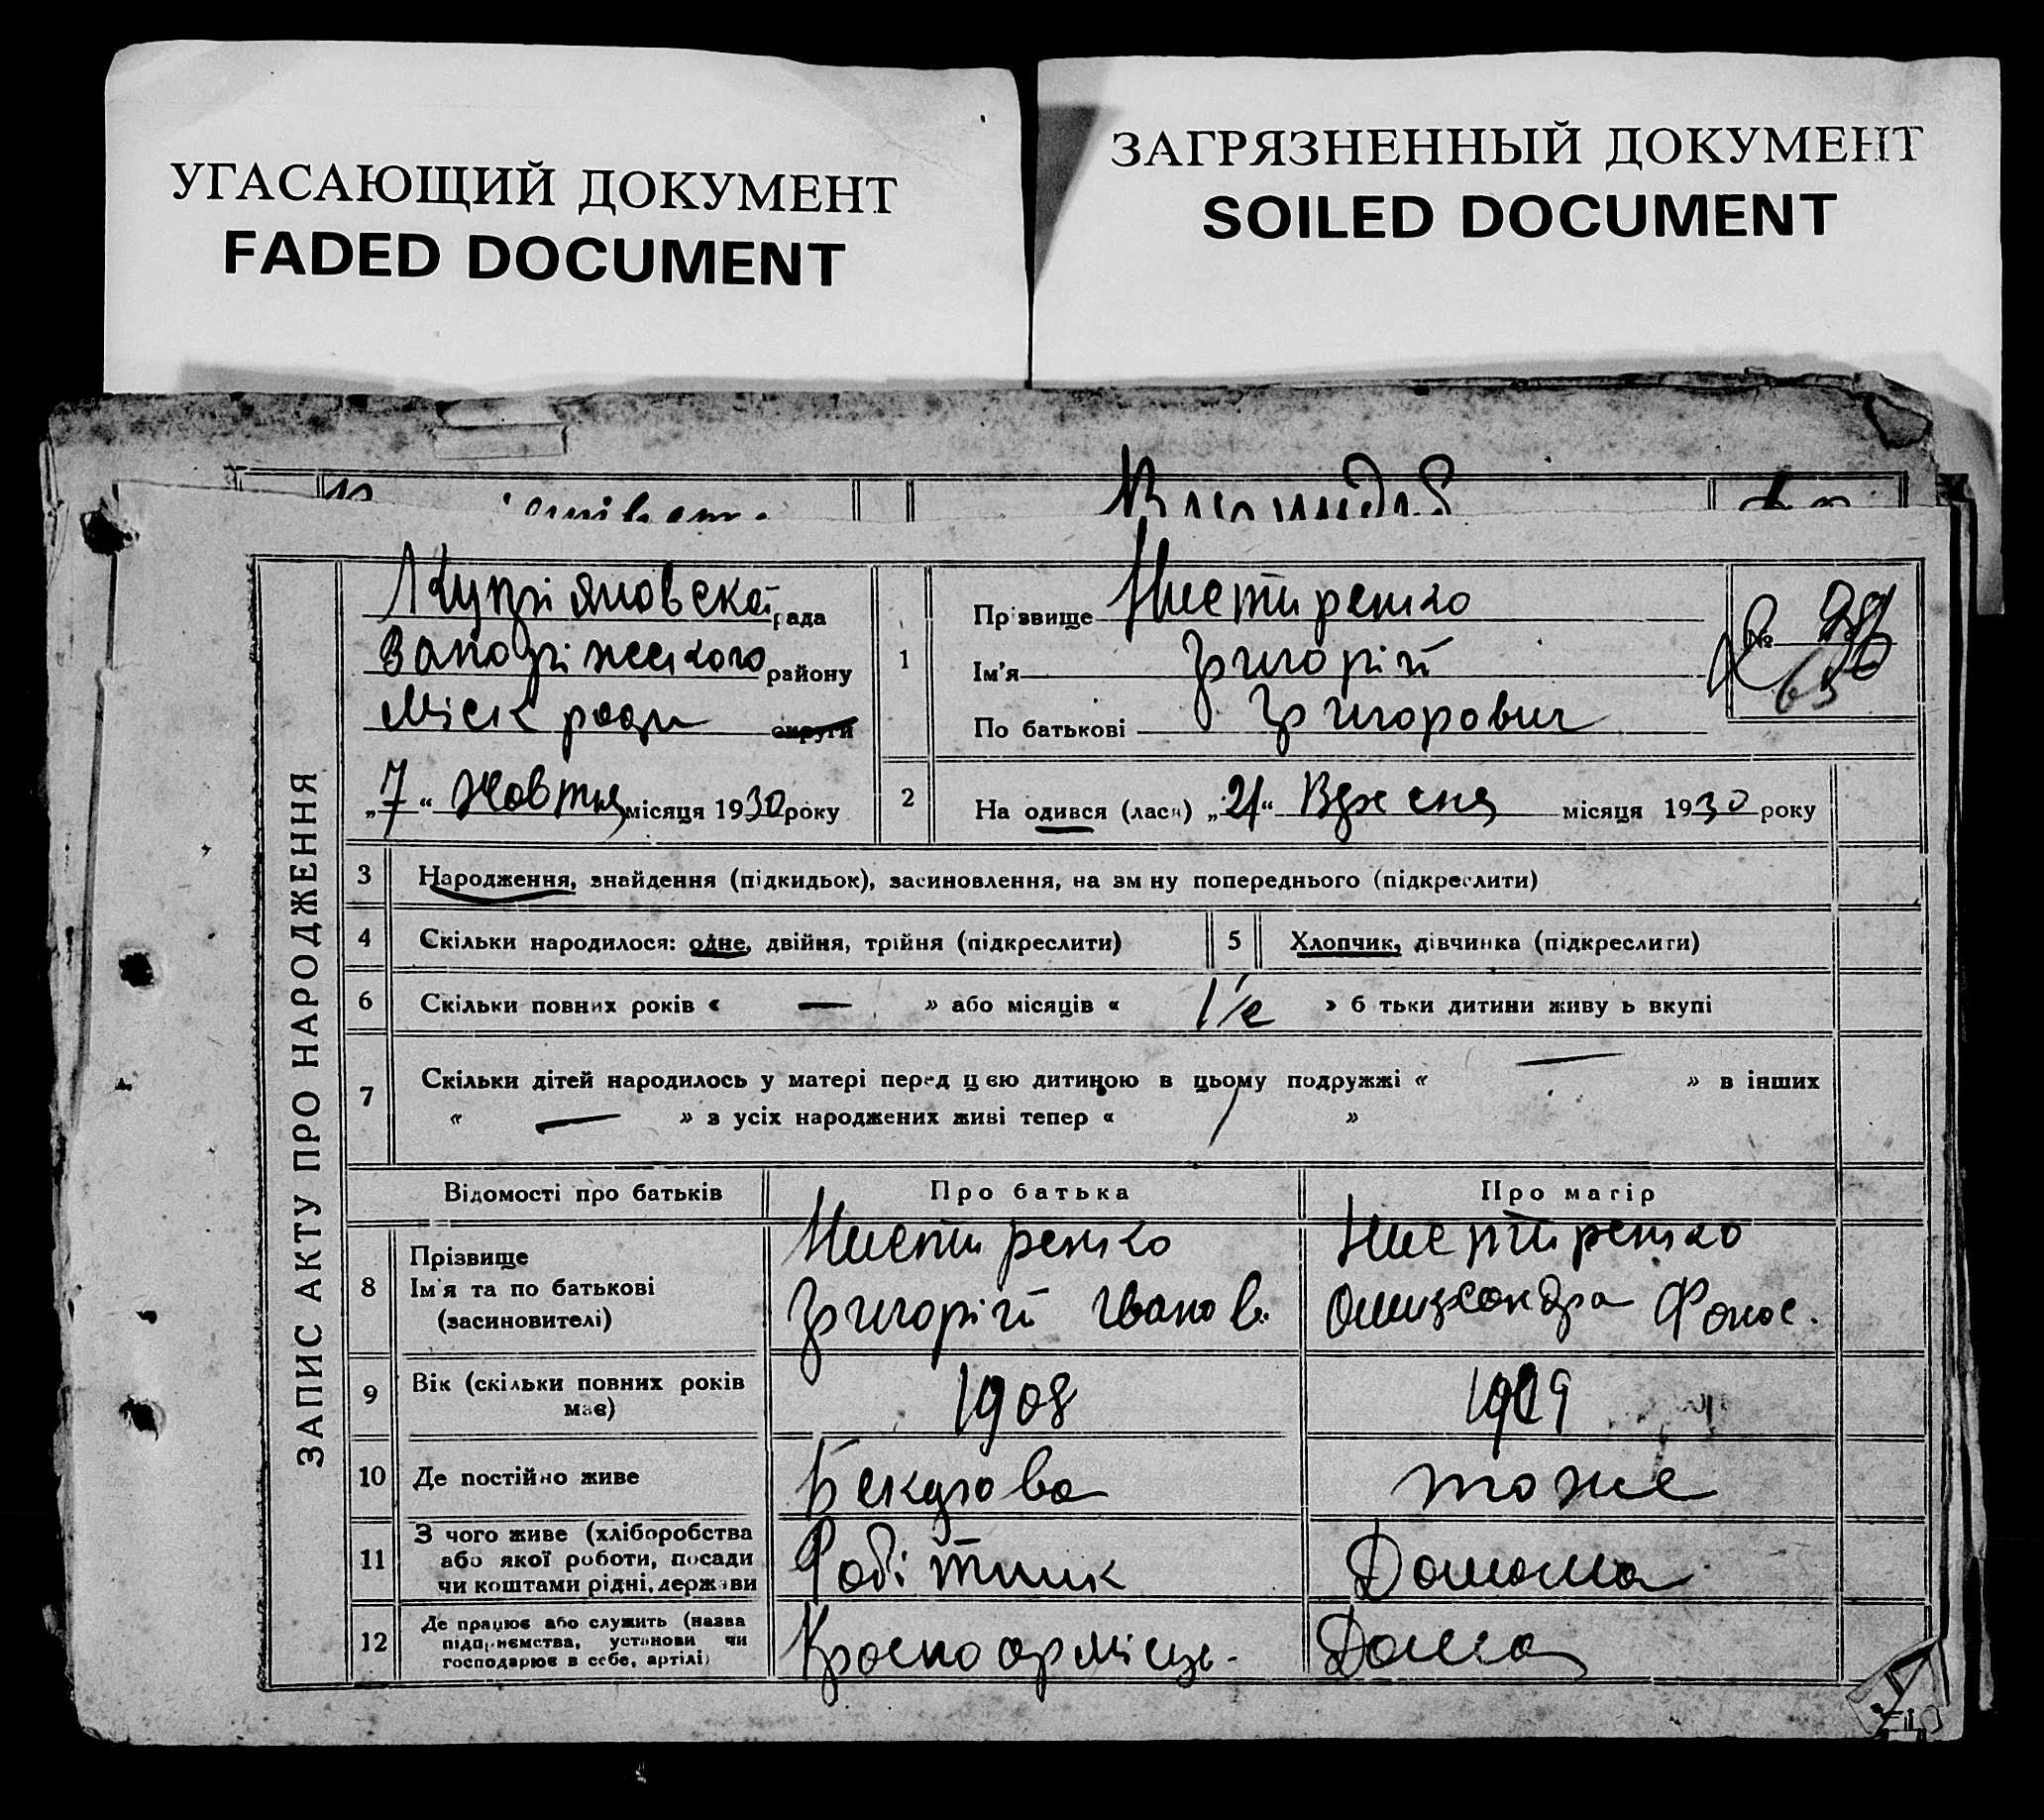 УГАСАЮЩИЙ ДОКУМЕНТ
FADED DOCUMENT
ЗАГРЯЗНЕННЫЙ ДОКУМЕНТ
SOILED DOCUMENT
ЗАПИС АКТУ ПРО НАРОДЖЕННЯ
рада
району
Міск ради округи
„7“ Жовтня місяця 1930 року
1
Прізвище Нистиренко
Ім'я Григорій
По батькові Григорович
№
63
2
На одився (лася) „21“ Вресня місяця 1930 року
3 Народження, знайдення (підкидьок), засиновлення, на зм ну попереднього (підкреслити)
4 Скільки народилося: одне, двійня, трійня (підкреслити)
5 Хлопчик, дівчинка (підкреслити)
6 Скільки повних років « — » або місяців « » б тьки дитини живу ь вкупі
7 Скільки дітей народилось у матері перед цією дитиною в цьому подружжі « — » в інших
« — » з усіх народжених живі тепер « 1 »
Відомості про батьків Про батька Про матір
8 Прізвище
Ім'я та по батькові
(засиновителі)
Нистиренко
Григорій Іванов.
Нистиренко
Олександра
9 Вік (скільки повних років
має)
1908
1909
10 Де постійно живе
тоже
11 З чого живе (хліборобства
або якої роботи, посади
чи коштами рідні, держави
Робітник
Домома
12 Де працює або служить (назва
підприємства, установи чи
господарює в себе, артілі)
Красноармієць
Дома